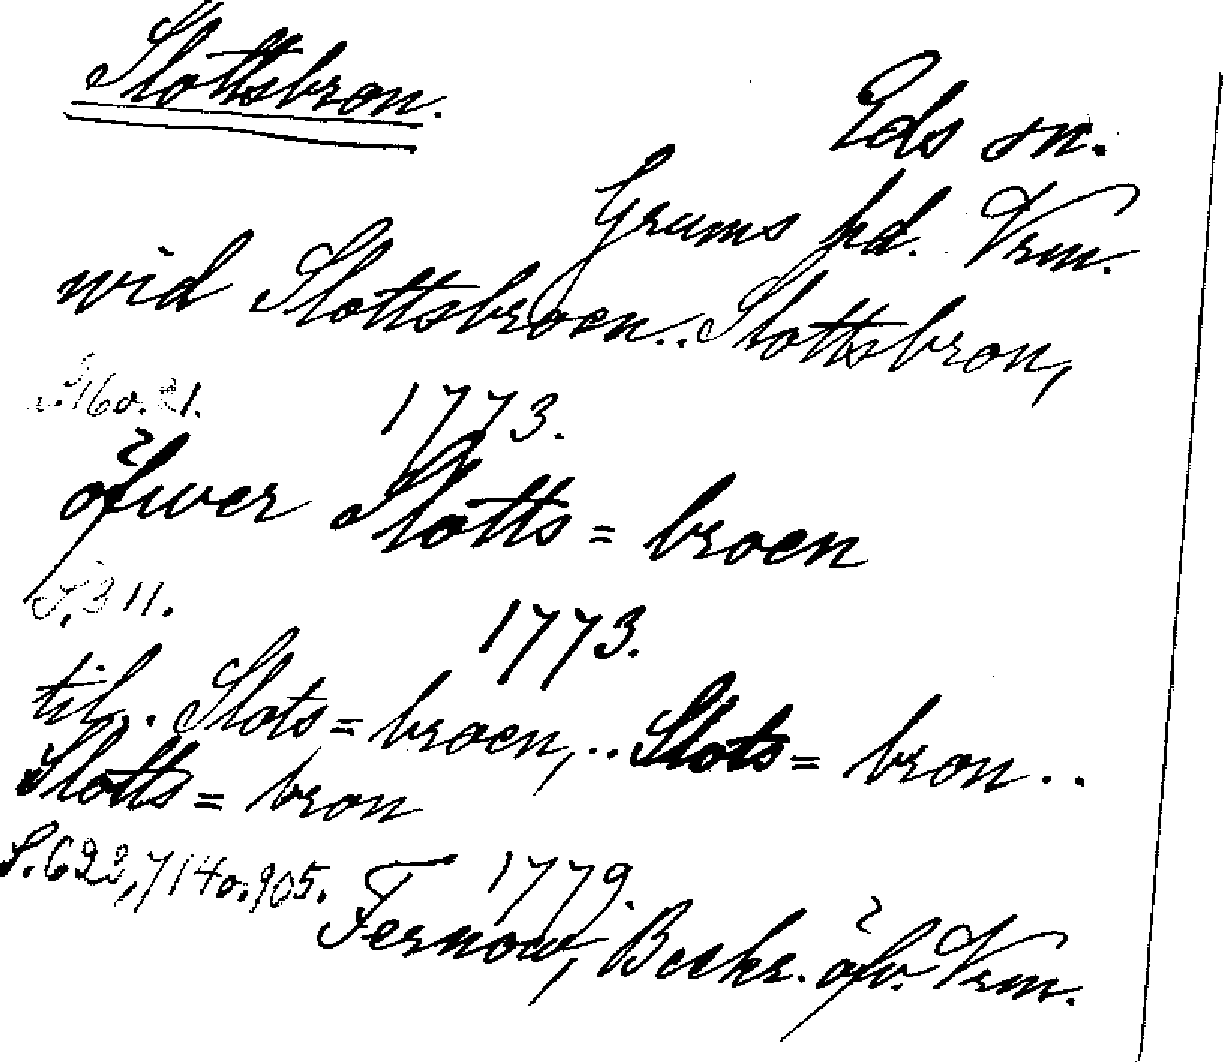 Slottsbron.
Eds sn.
Grums hd. Vrm.
wid Slottsbroen.. Slottsbron,
S. 16 o. 21. 1773.
öfwer Slotts=broen
S. 311. 1773.
til.. Slots=broen,.. Slots=bron..
Slotts=bron
S. 622, 714 o. 905. 1779.
Fernow, Beskr. öfv. Vrm.